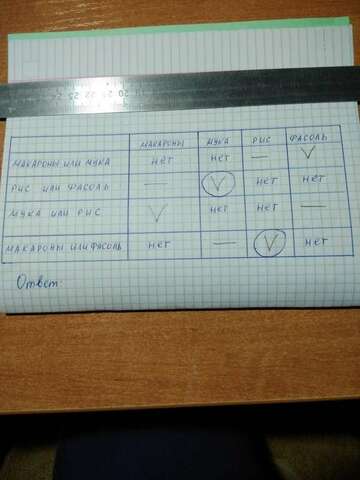 МАКАРОНЫ МУКА РИС ФАСОЛЬ
МАКАРОНЫ ИЛИ МУКА нет нет — V
РИС ИЛИ ФАСОЛЬ — V нет нет
МУКА ИЛИ РИС V нет нет —
МАКАРОНЫ ИЛИ ФАСОЛЬ нет — V нет
Ответ: